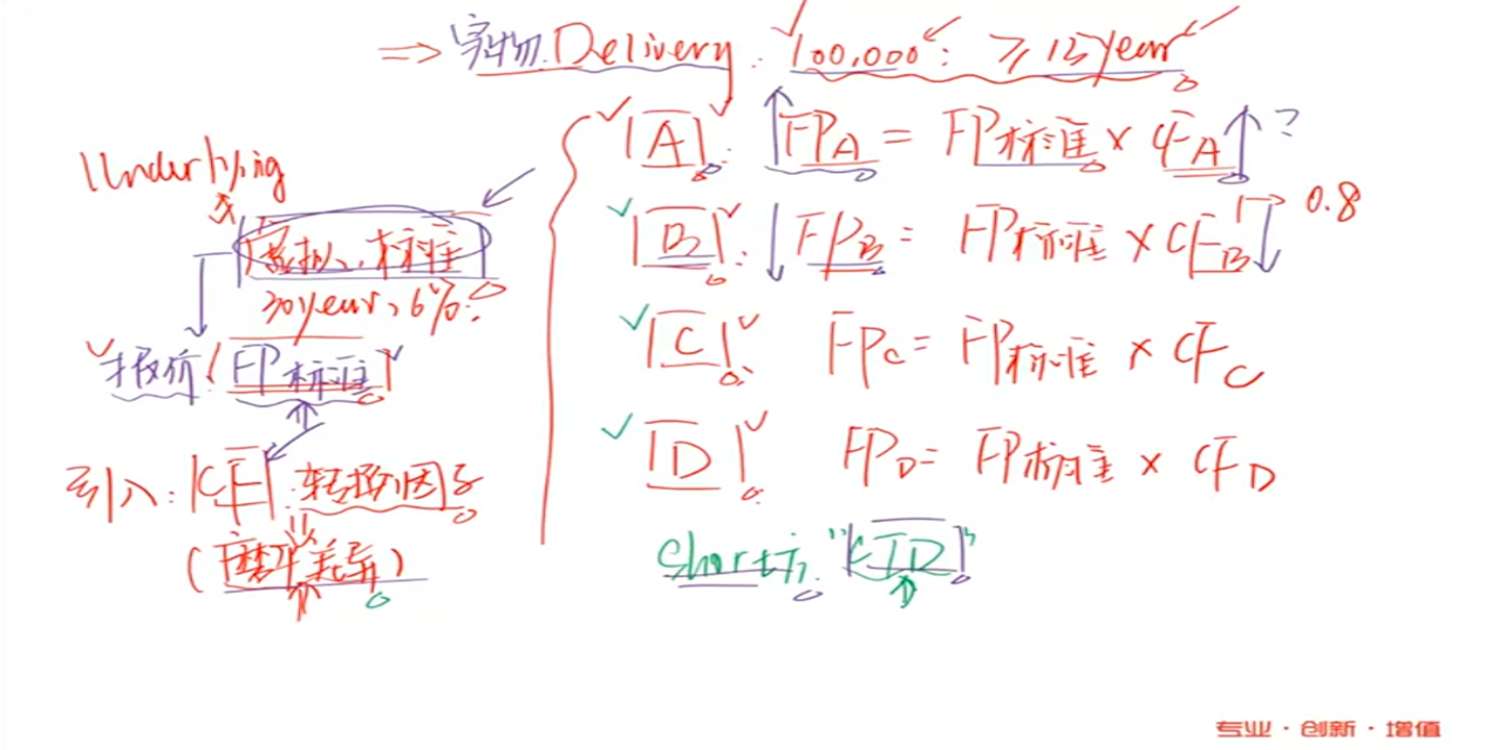 ⇒ 实物 Delivery: 100,000: ≥15year
A: FP_A = FP标准 × CF_A ?
Underlying
B: FP_B = FP标准 × CF_B → 0.8
虚拟、标准
30year、6%:
C FP_C = FP标准 × CF_C
报价: FP标准
D FP_D = FP标准 × CF_D
引入: CF: 转换因子
(磨平差异)
short方: "CTD"
专业·创新·增值